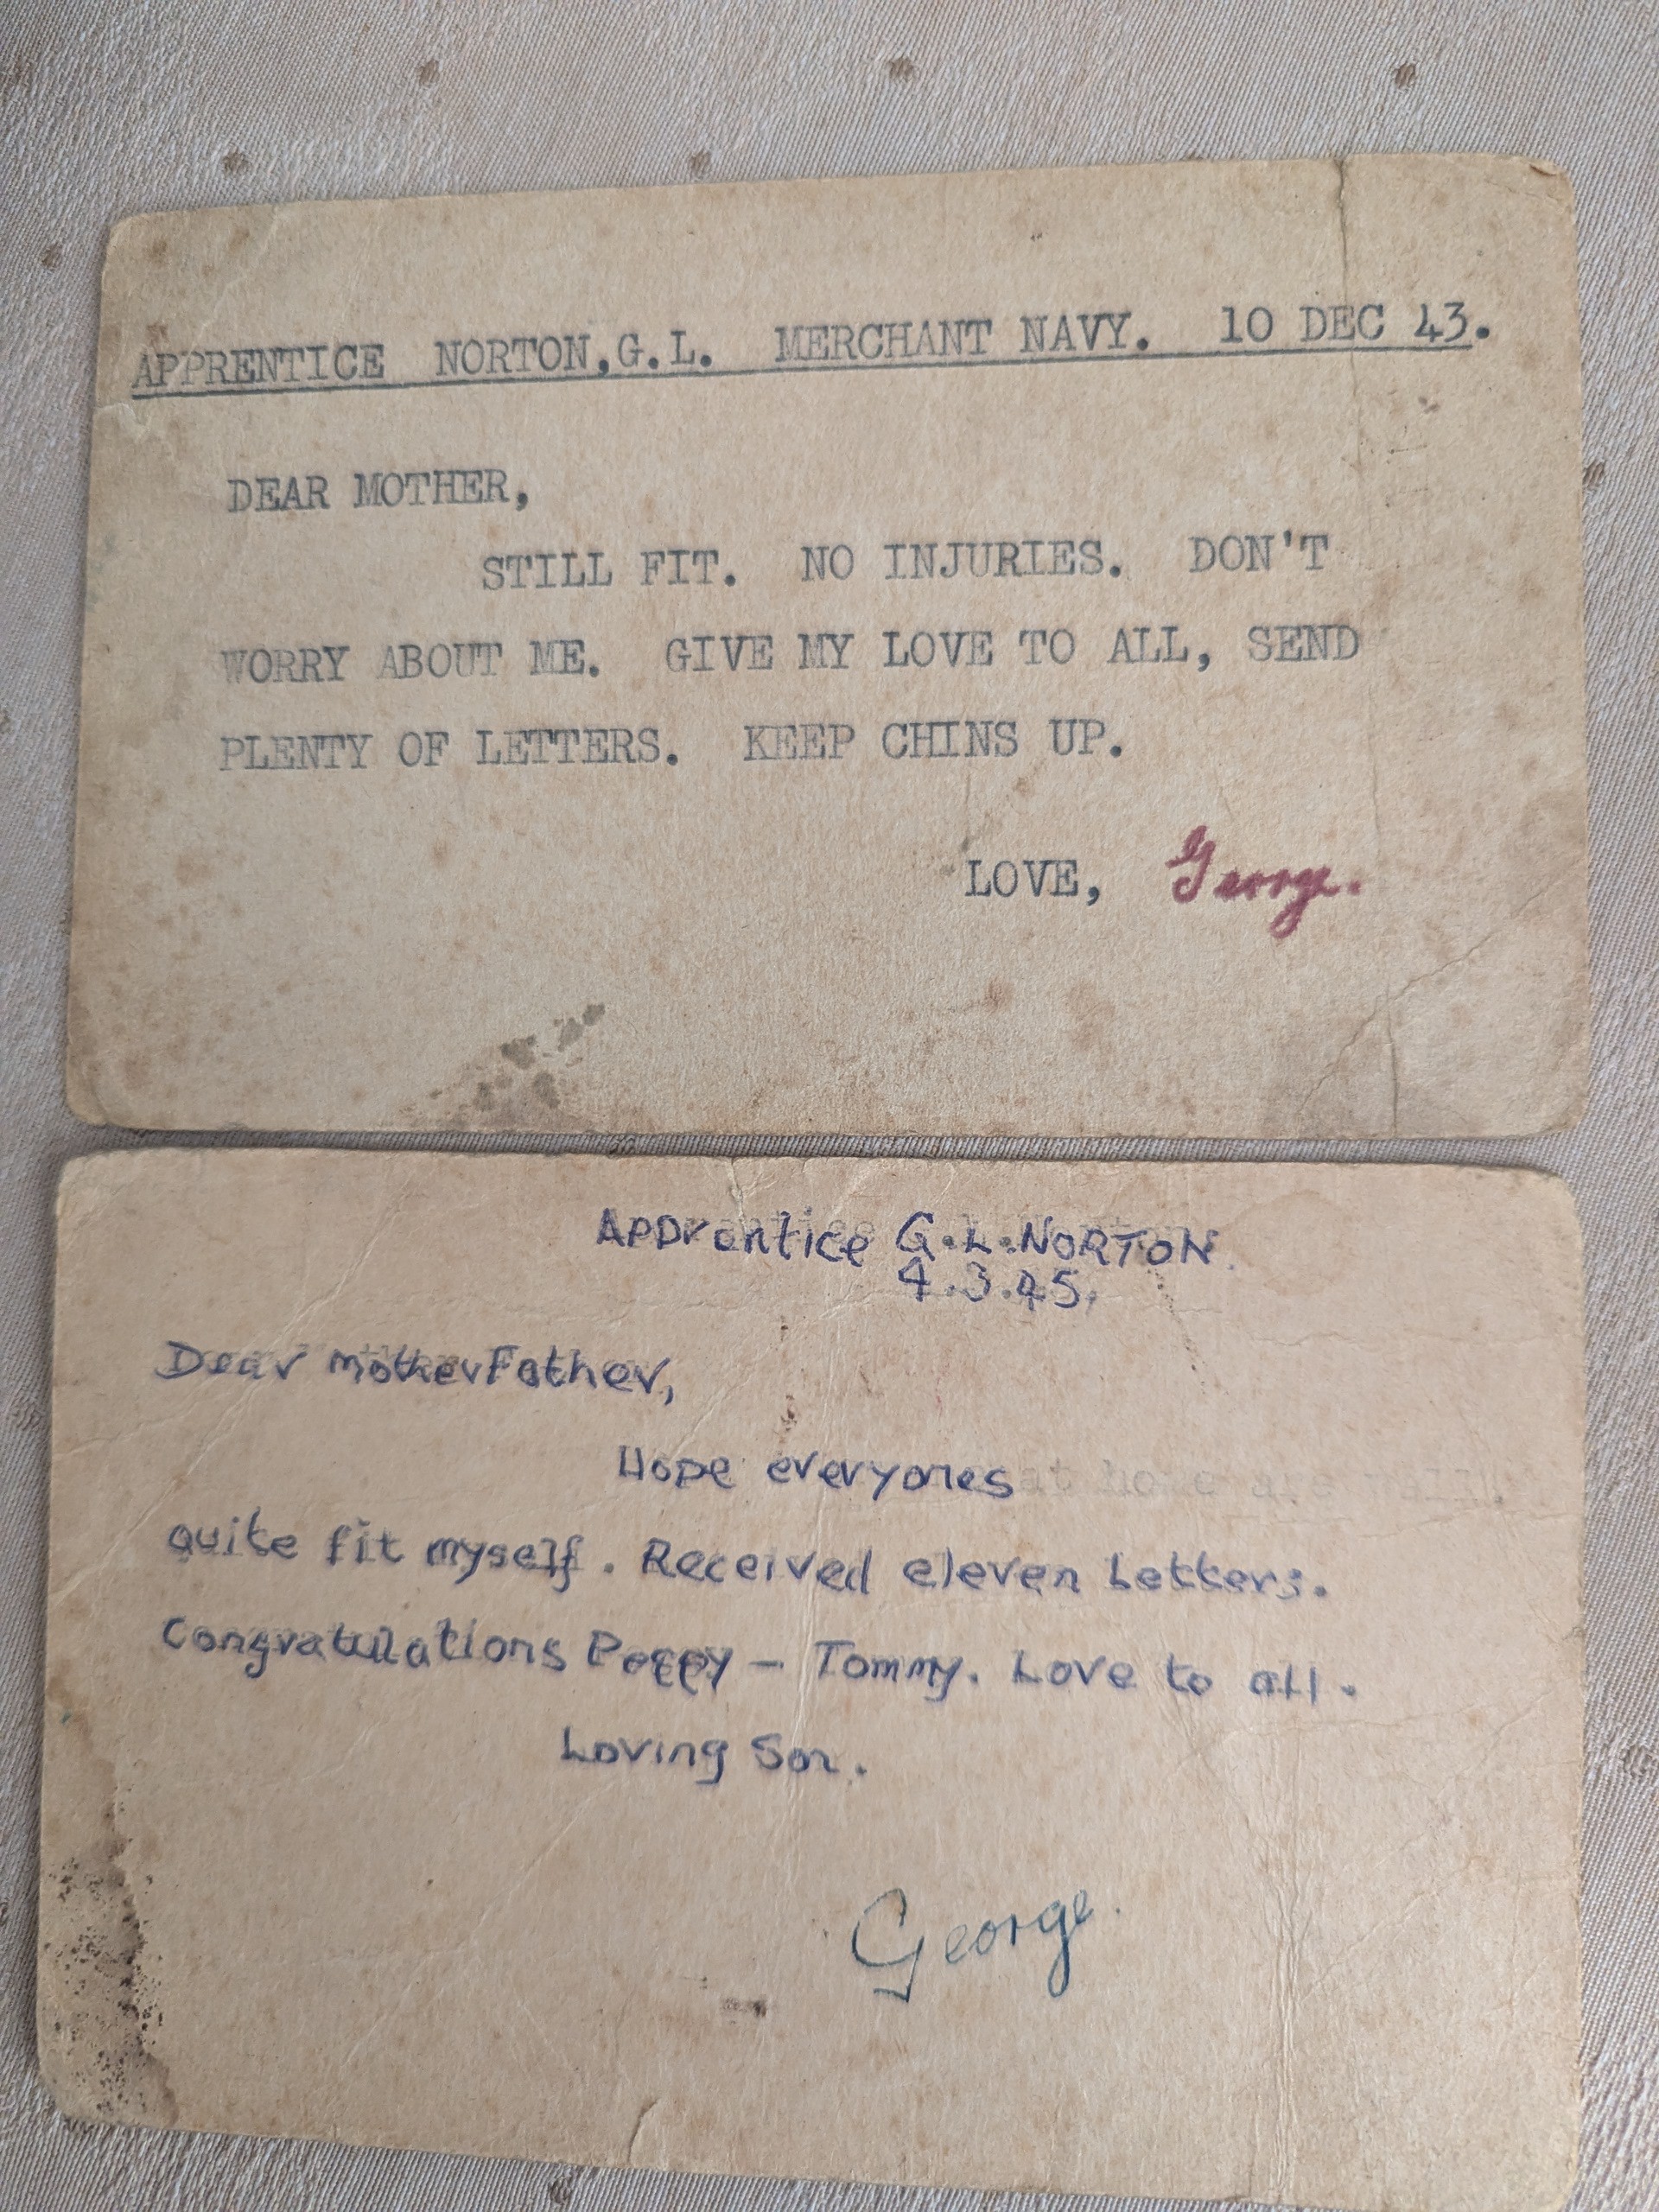 APPRENTICE NORTON,G.L. MERCHANT NAVY. 10 DEC 43.
DEAR MOTHER,
STILL FIT. NO INJURIES. DON'T
WORRY ABOUT ME. GIVE MY LOVE TO ALL, SEND
PLENTY OF LETTERS. KEEP CHINS UP.
LOVE, George.
Apprentice G.L.NORTON.
4.3.45.
Dear Mother Father,
Hope everyones at home are well.
quite fit myself. Received eleven Letters.
Congratulations Peggy - Tommy. Love to all.
Loving Son.
George.